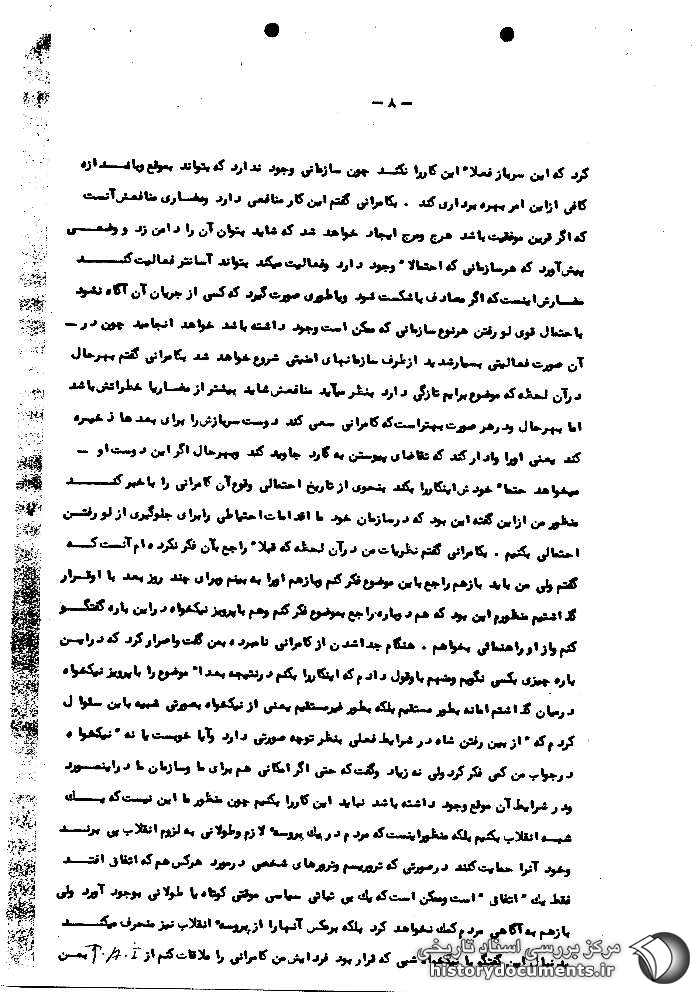 — ۸ —
کرد که این سرباز فعلا" این کاررا نکند چون سازمانی وجود ندارد که بتواند بموقع وباندازه
کافی ازاین امر بهره برداری کند . بکامرانی گفتم این کار منافعی دارد ومضاری منافعش آنست
که اگر قرین موفقیت باشد هرج ومرج ایجاد خواهد شد که شاید بتوان آن را دامن زد و وضعی
پیش آورد که هرسازمانی که احتمالا" وجود دارد وفعالیت میکند بتواند آسانتر فعالیت کند
مضارش اینست که اگر مصادف باشکست شود ویاطوری صورت گیرد که کسی از جریان آن آگاه نشود
باحتمال قوی لو رفتن هرنوع سازمانی که ممکن است وجود داشته باشد خواهد انجامید چون در —
آن صورت فعالیتی بسیارشدید ازطرف سازمانهای امنیتی شروع خواهد شد بکامرانی گفتم بهرحال
درآن لحظه که موضوع برایم تازگی دارد بنظر میآید منافعش شاید بیشتر از مضاریا خطراتش باشد
اما بهرحال ودرهر صورت بهتراست که کامرانی سعی کند دوست سربازش را برای بعدها ذخیره
کند یعنی اورا وادار کند که تقاضای پیوستن به گارد جاوید کند وبهرحال اگر این دوست او —
میخواهد حتما" خودش اینکاررا بکند بنحوی از تاریخ احتمالی وقوع آن کامرانی را باخبر کند
منظور من ازاین گفته این بود که درسازمان خود ما اقدامات احتیاطی رابرای جلوگیری از لو رفتن
احتمالی بکنیم . بکامرانی گفتم نظریات من درآن لحظه که قبلا" راجع بآن فکر نکرده ام آنست که
گفتم ولی من باید بازهم راجع باین موضوع فکر کنم وبازهم اورا به بینم وبرای چند روز بعد با اوقرار
گذاشتیم منظورم این بود که هم دوباره راجع بموضوع فکر کنم وهم باپرویز نیکخواه دراین باره گفتگو
کنم واز او راهنمائی بخواهم . هنگام جداشدن از کامرانی نامبرده بمن گفت واصرار کرد که دراین
باره چیزی بکسی نگویم ومنهم باوقول دادم که اینکاررا بکنم درنتیجه بعدا" موضوع را باپرویز نیکخواه
درمیان گذاشتم امانه بطور مستقیم بلکه بطور غیرمستقیم یعنی از نیکخواه بصورتی شبیه باین سئوال
کردم که " از بین رفتن شاه در شرایط فعلی بنظر توچه صورتی دارد وآیا خوبست یا نه " نیکخواه
درجواب من کمی فکر کرد ولی نه زیاد وگفت که حتی اگر امکانی هم برای ما وسازمان ما دراینمورد
ودر شرایط آن موقع وجود داشته باشد نباید این کاررا بکنیم چون منظور ما این نیست که یک
شبه انقلاب بکنیم بلکه منظوراینست که مردم دریک پروسه" لازم وطولانی به لزوم انقلاب پی برند
وخود آنرا حمایت کنند درصورتی که تروریسم وترورهای شخصی درمورد هرکس هم که اتفاق افتد
فقط یک " اتفاق " است وممکن است که یک بی ثباتی سیاسی موقتی کوتاه یا طولانی بوجود آورد ولی
بازهم به آگاهی مردم کمک نخواهد کرد بلکه برعکس آنها را از پروسه" انقلاب نیز منحرف میکند
بدنبال این گفتگو با نیکخواه شبی که قرار بود فردایش من کامرانی را ملاقات کنم از بمن
مرکز بررسی اسناد تاریخی
historydocuments.ir